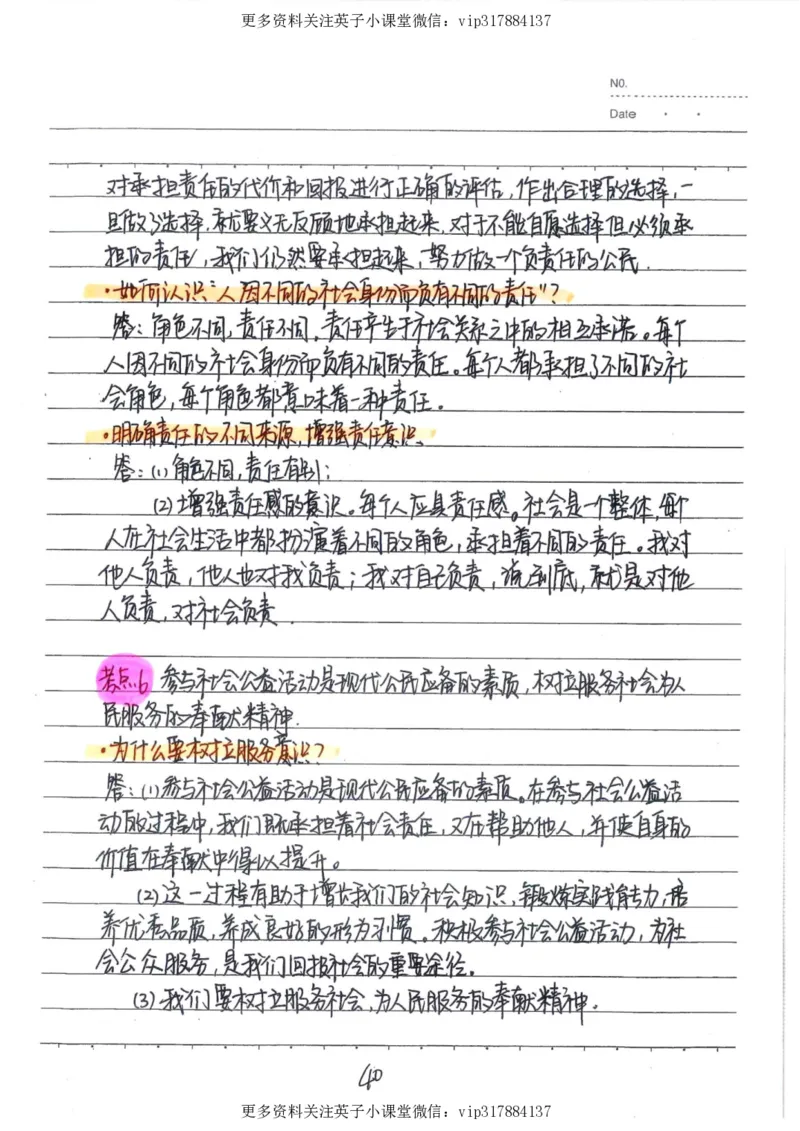 更多资料关注英子小课堂微信：vip317884137
NO.
Date
对承担责任的代价和回报进行正确的评估，作出合理的选择，一
旦做了选择，就要义无反顾地承担起来，对于不能自愿选择但必须承
担的责任，我们仍然要承担起来，努力做一个负责任的公民．
·如何认识“人因不同的社会身份而负有不同的责任”？
答：角色不同，责任不同，责任产生于社会关系之中的相互承诺。每个
人因不同的社会身份而负有不同的责任。每个人都承担了不同的社
会角色，每个角色都意味着一种责任．
·明确责任的不同来源，增强责任意识．
答：(1)角色不同，责任有别；
(2)增强责任感的意识。每个人应具责任感。社会是一个整体，每个
人在社会生活中都扮演着不同的角色，承担着不同的责任。我对
他人负责，他人也对我负责；我对自己负责，说到底，就是对他
人负责，对社会负责．
考点6 参与社会公益活动是现代公民应备的素质，树立服务社会为人
民服务的奉献精神．
·为什么要树立服务意识？
答：(1)参与社会公益活动是现代公民应备的素质。在参与社会公益活
动的过程中，我们既承担着社会责任，又在帮助他人，并使自身的
价值在奉献中得以提升。
(2)这一过程有助于增长我们的社会知识，锻炼实践能力，培
养优秀品质，养成良好的形为习惯。积极参与社会公益活动，为社
会公众服务，是我们回报社会的重要途径．
(3)我们要树立服务社会，为人民服务的奉献精神．
40
更多资料关注英子小课堂微信：vip317884137